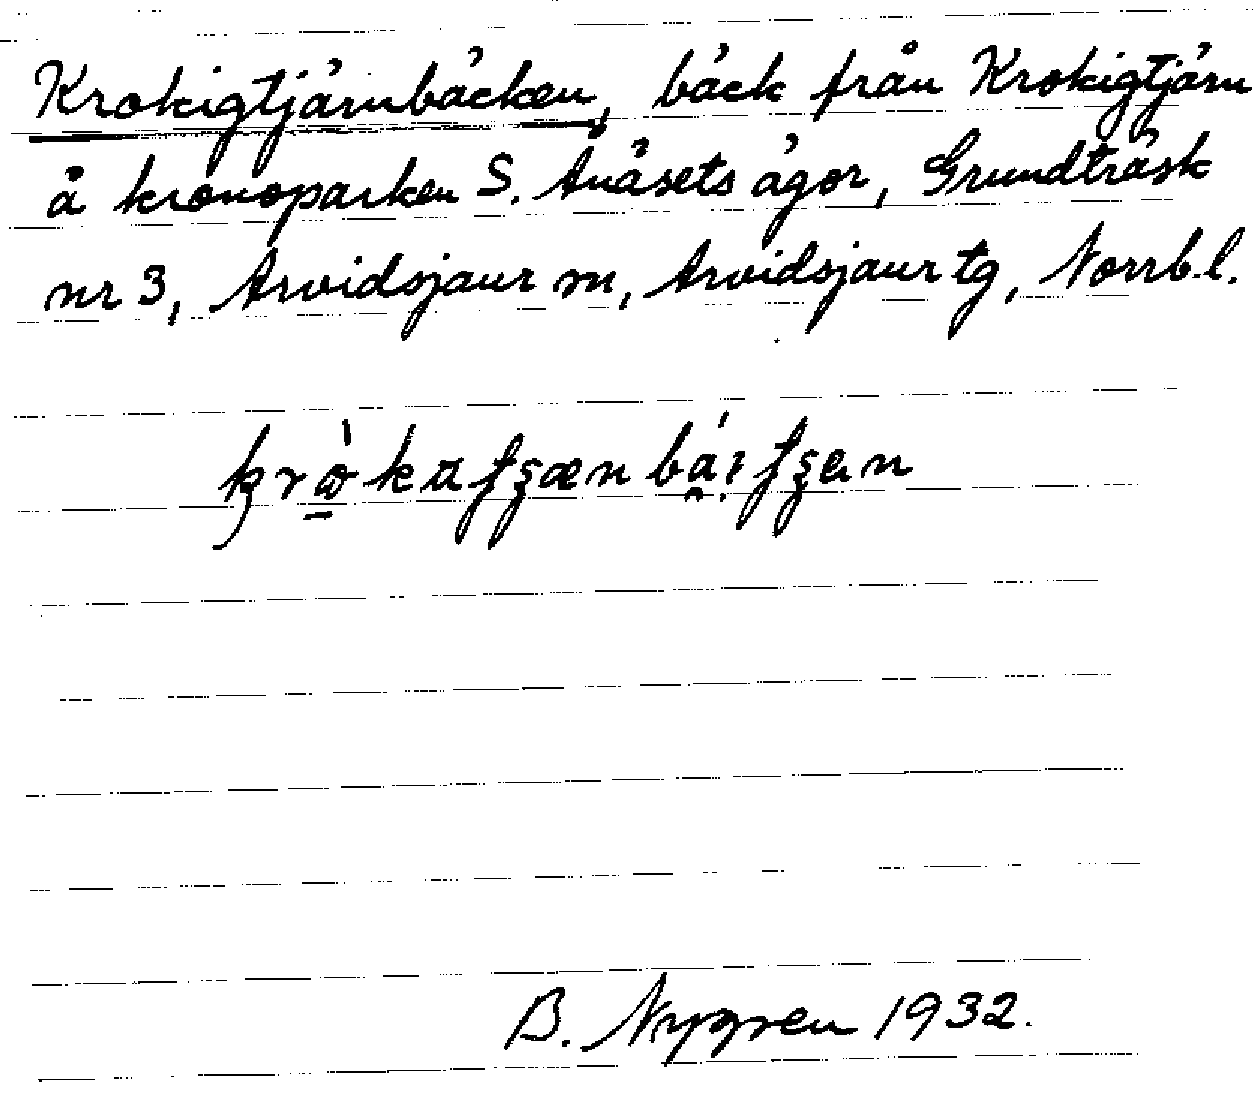 Krokigtjärnbäcken, bäck från Krokigtjärn
å kronoparken S. Anåsets ägor, Grundträsk
nr 3, Arvidsjaur sn, Arvidsjaur tg, Norrb.l.
B. Nygren 1932.